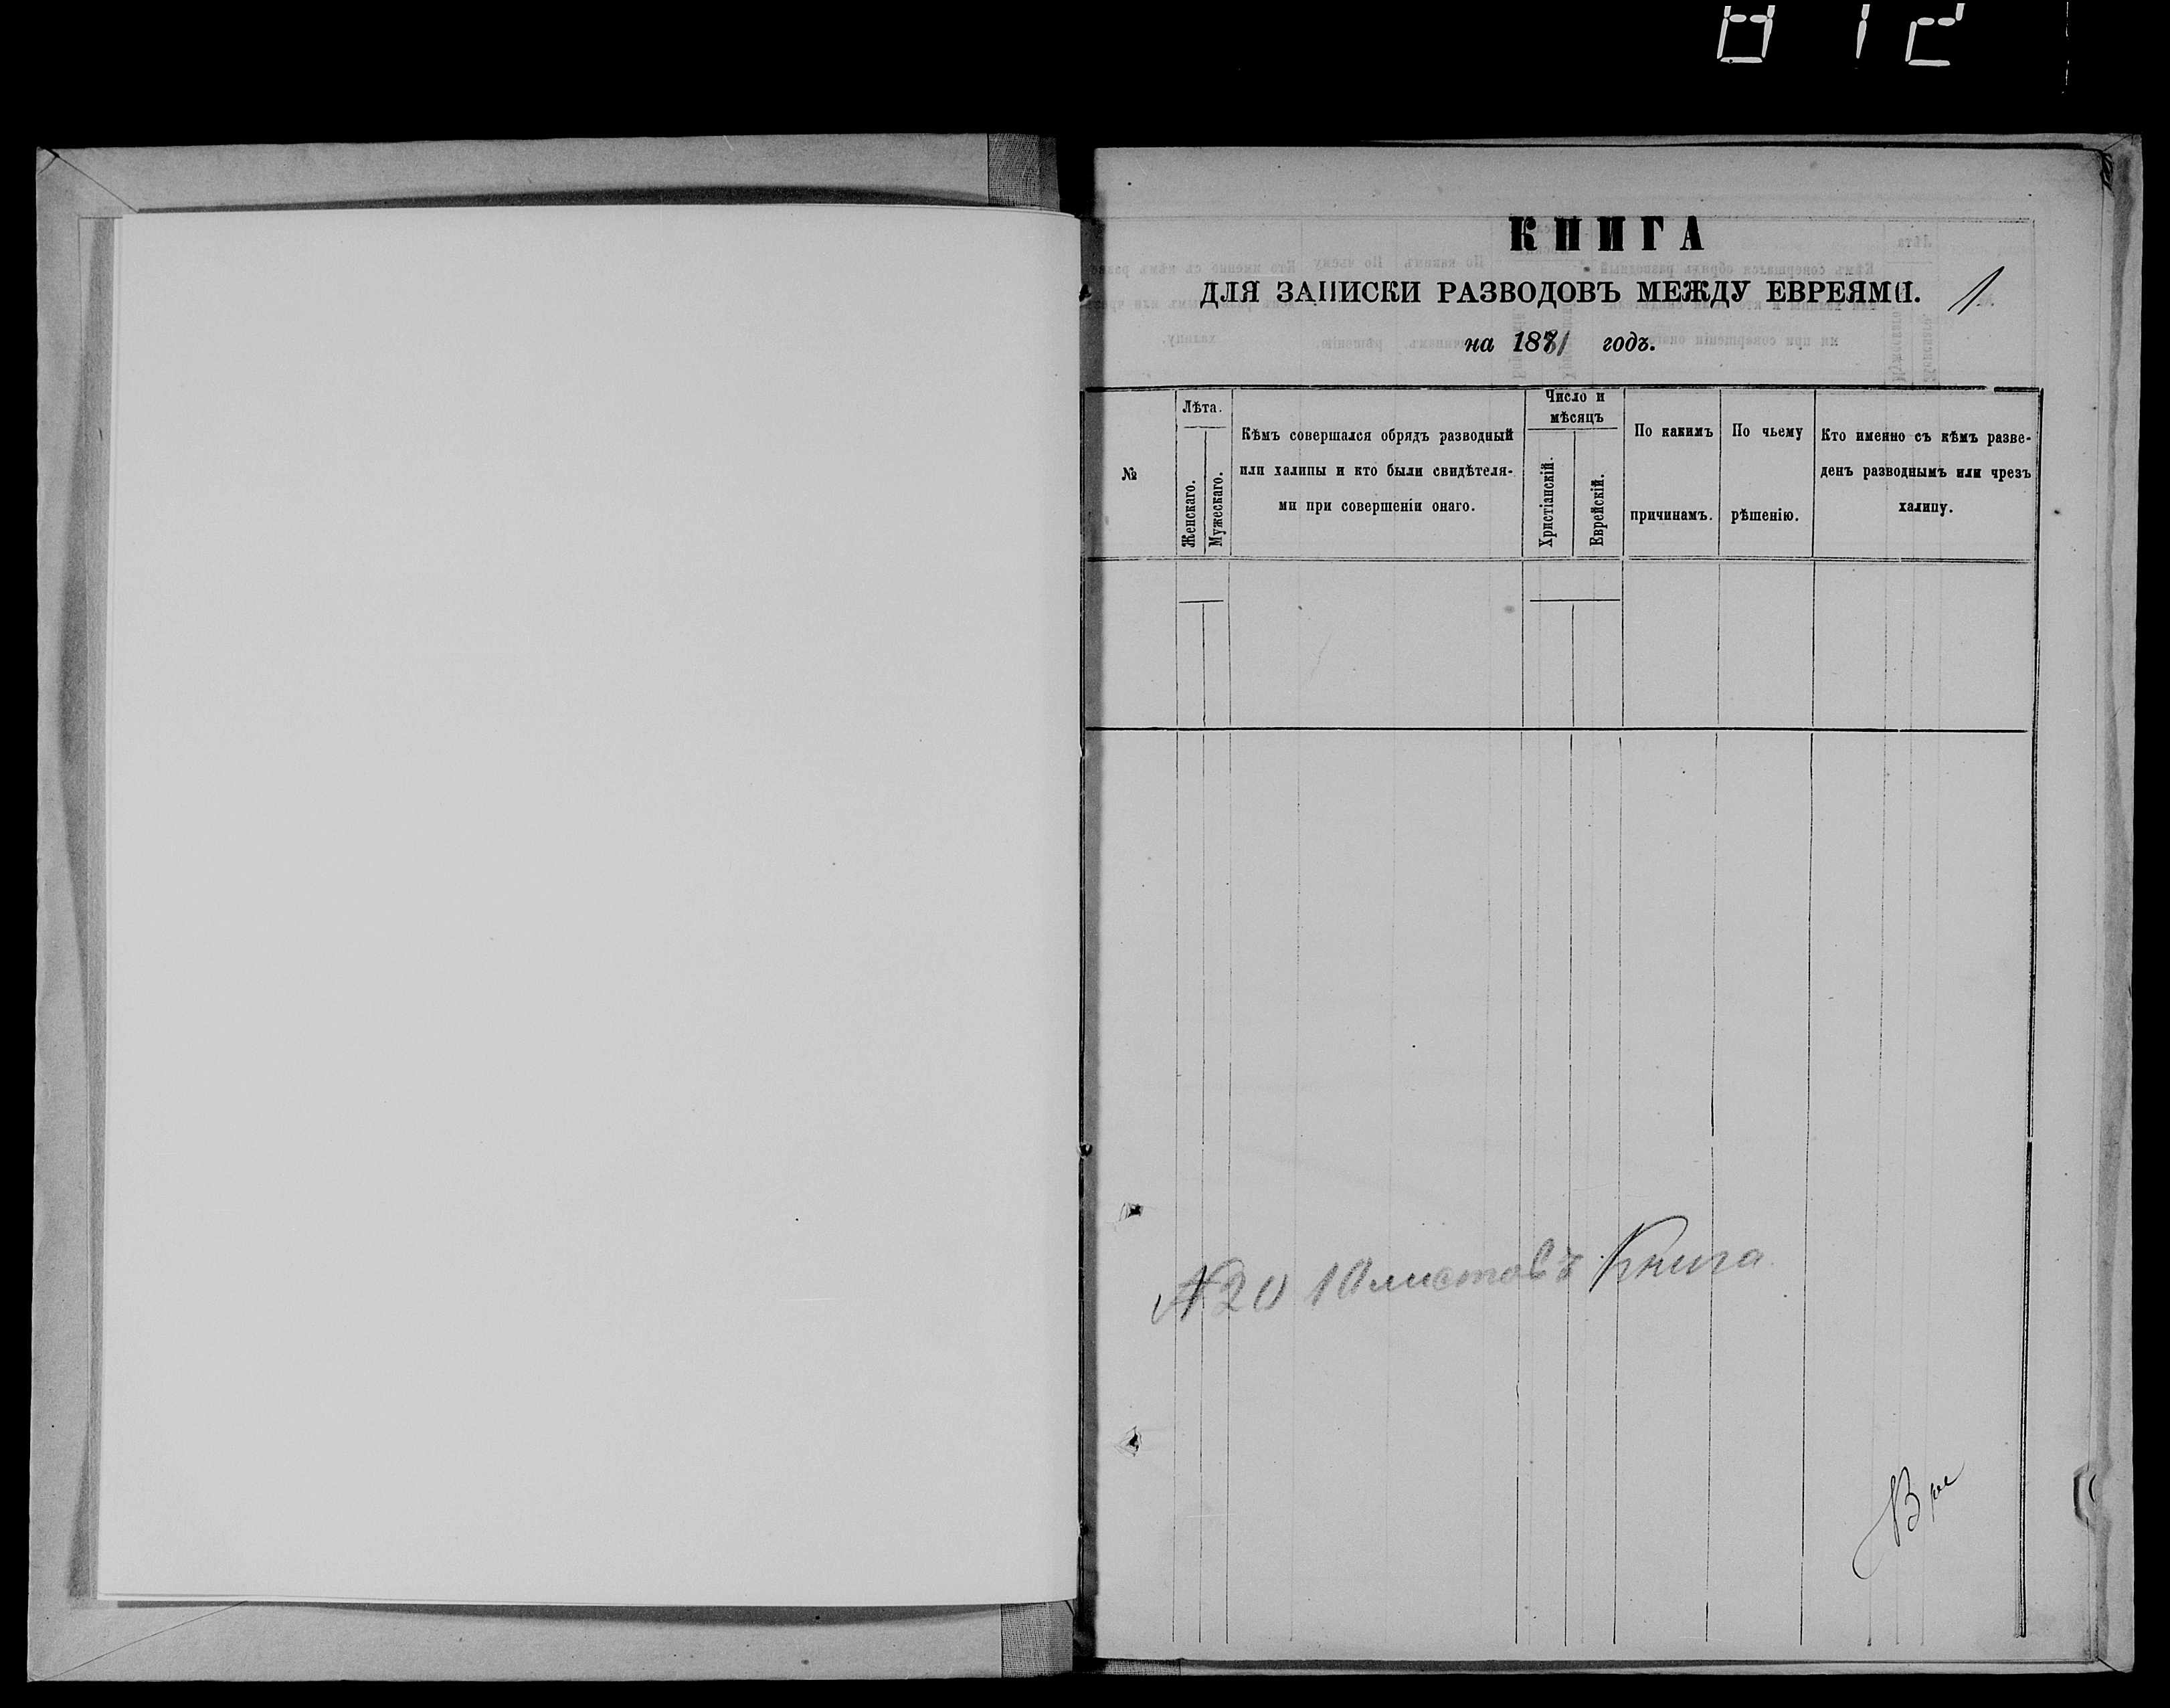 012
КНИГА
ДЛЯ ЗАПИСКИ РАЗВОДОВЪ МЕЖДУ ЕВРЕЯМИ.
1
на 1881 годъ.
№
Лѣта.
Женскаго.
Мужескаго.
Кѣмъ совершался обрядъ разводный
или халицы и кто были свидѣтеля-
ми при совершеніи онаго.
Число и
мѣсяцъ
Христіанскій.
Еврейскій.
По какимъ
причинамъ.
По чьему
рѣшенію.
Кто именно съ кѣмъ разве-
денъ разводнымъ или чрезъ
халицу.
№20 10 листовъ Книга